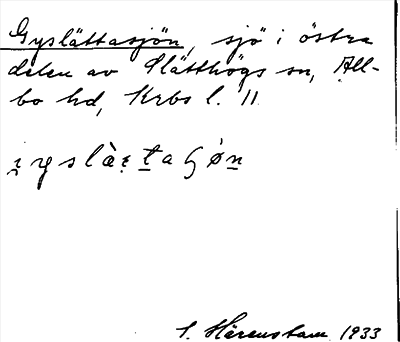 Gyslättasjön, sjö i östra
delen av Slätthögs sn, All-
bo hd, Krbs l. 11
S. Härenstam 1933